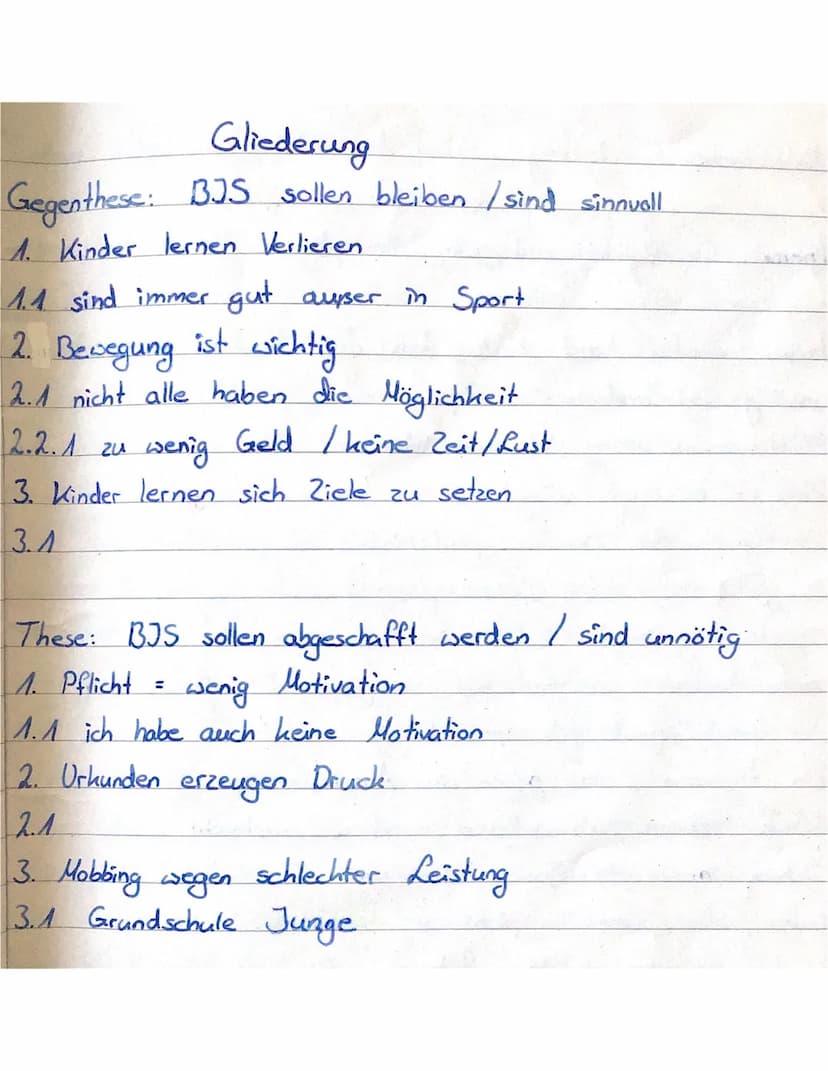 Gliederung
Gegenthese: BJS sollen bleiben / sind sinnvoll
1. Kinder lernen Verlieren
1.1 sind immer gut außer in Sport
2. Bewegung ist wichtig
2.1 nicht alle haben die Möglichkeit
2.2.1 zu wenig Geld / keine Zeit / Lust
3. Kinder lernen sich Ziele zu setzen
3.1
These: BJS sollen abgeschafft werden / sind unnötig
1. Pflicht = wenig Motivation
1.1 ich habe auch keine Motivation
2. Urkunden erzeugen Druck
2.1
3. Mobbing wegen schlechter Leistung
3.1 Grundschule Junge